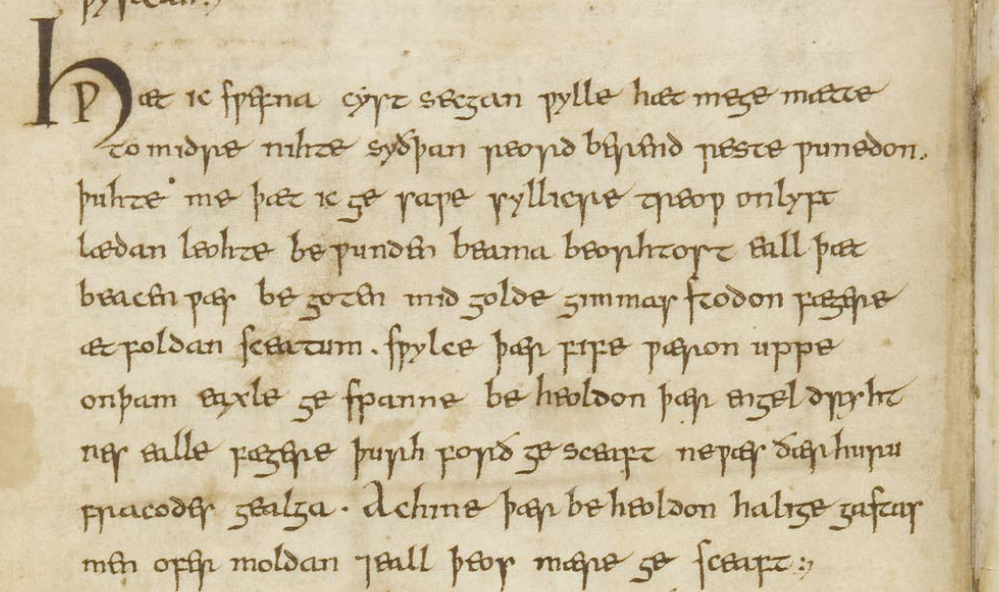 HǷæt ic sƿefna cyst secgan ƿylle hæt mege mætte
to midre nihte syðþan reord berend reste ƿunedon.
þuhte me þæt ic ge saƿe syllicre treoƿ onlyft
lædan leohte be ƿunden beama beorhtost eall þæt
beacen ƿæs be goten mid golde gimmas stodon fægere
æt foldan sceatum. sƿylce þær fife ƿæron uppe
onþam eaxle ge spanne be heoldon þær engel dryht
nes ealle fægere þurh forð ge sceaft neƿæs ðær huru
fracodes gealga. Achine þær be heoldon halige gastas
men ofer moldan ⁊eall þeos mære ge sceaft:,